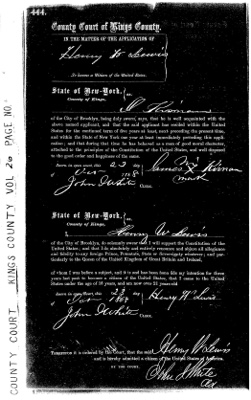 444.
County Court of Kings County.
IN THE MATTER OF THE APPLICATION OF
Henry W Lewis
To become a Citizen of the United States.
State of New-York, ss.
County of Kings,
of the City of Brooklyn, being duly sworn, says, that he is well acquainted with the above named applicant, and that the said applicant has resided within the United States for the continued term of five years at least, next preceding the present time, and within the State of New-York one year at least immediately preceding this application; and that during that time he has behaved as a man of good moral character, attached to the principles of the Constitution of the United States, and well disposed to the good order and happiness of the same.
Sworn in open court this 23
day
James Kirnan
mark
John White
Clerk.
State of New-York, ss.
County of Kings,
I, Henry W Lewis
of the City of Brooklyn, do solemnly swear that I will support the Constitution of the
United States; and that I do absolutely and entirely renounce and abjure all allegiance
and fidelity to any foreign Prince, Potentate, State or Sovereignty whatever; and particularly to the Queen of the United Kingdom of Great Britain and Ireland,
of whom I was before a subject, and it is and has been bona fide my intention for three
years last past to become a citizen of the United States, that I came to the United
States under the age of 18 years, and am now over 21 years old
Sworn in open court this 23
day
Henry W Lewis
John White
Clerk.
Thereupon it is ordered by the Court, that the said Henry W Lewis
and is hereby admitted a citizen of the United States of America.
BY THE COURT,
John White
Clk
COUNTY COURT KINGS COUNTY VOL 26 PAGE NO.